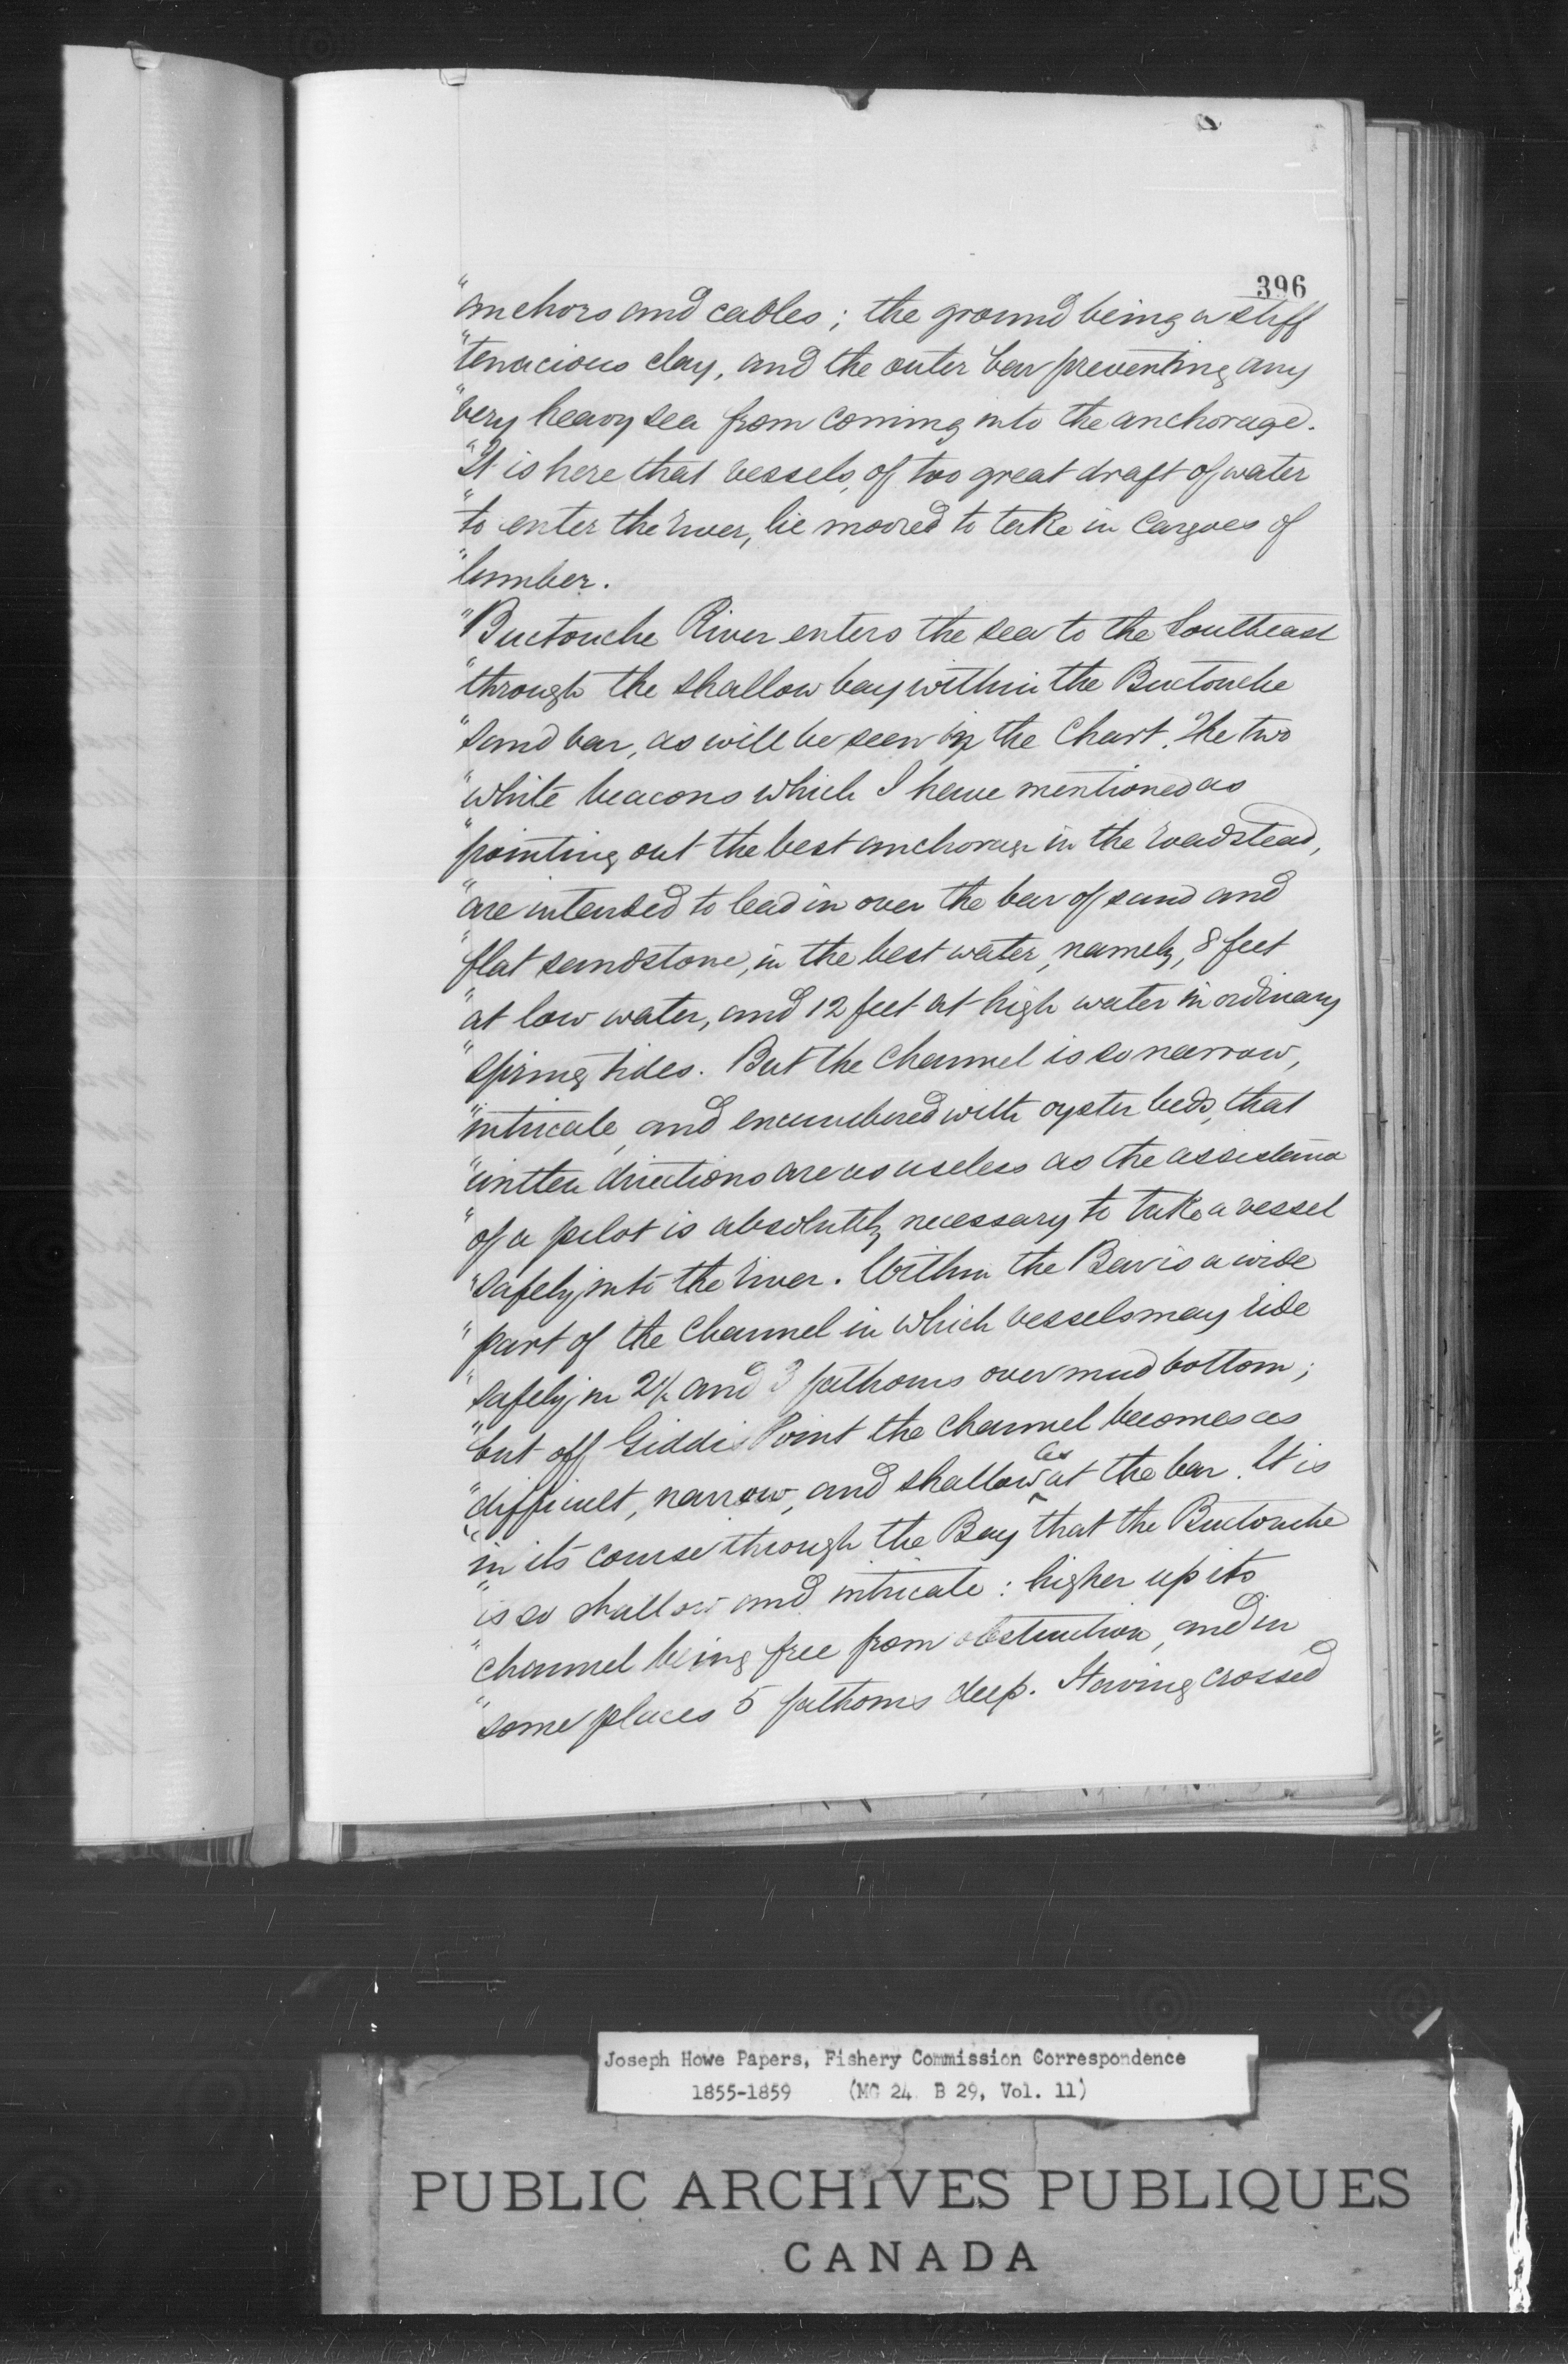 396
"anchors and cables; the ground being a stiff
"tenacious clay, and the outer bar preventing any
"very heavy sea from coming into the anchorage.
"It is here that vessels, of too great draft of water
"to enter the river, lie moored to take in Cargoes of
"lumber.
"Buctouche River enters the sea to the Southeast
"through the shallow bay within the Buctouche
"Sand bar, as will be seen by the Chart. The two
"white beacons which I have mentioned as
"pointing out the best anchorage in the roadstead,
"are intended to lead in over the bar of sand and
"flat sandstone, in the best water, namely, 8 feet
"at low water, and 12 feet at high water in ordinary
"spring tides. But the Channel is so narrow,
"intricate, and encumbered with oyster beds, that
"written directions are as useless as the assistance
"of a pilot is absolutely necessary to take a vessel
"safely into the river. Within the Bar is a wide
"part of the Channel in which vessels may ride
"safely in 2½ and 3 fathoms over mud bottom;
"but off Giddis Point the Channel becomes as
"difficult, narrow, and shallow as at the bar. It is
"in its course through the Bay that the Buctouche
"is so shallow and intricate: higher up its
"channel being free from obstruction, and in
"some places 5 fathoms deep. Having crossed
Joseph Howe Papers, Fishery Commission Correspondence
1855-1859 (MG 24 B 29, Vol. 11)
PUBLIC ARCHIVES PUBLIQUES
CANADA